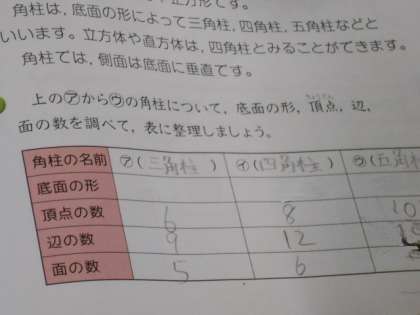 角柱は，底面の形によって三角柱，四角柱，五角柱などと
いいます。立方体や直方体は，四角柱とみることができます。
角柱では，側面は底面に垂直です。
上の㋐から㋒の角柱について，底面の形，頂点，辺，
面の数を調べて，表に整理しましょう。
角柱の名前 ㋐(三角柱) ㋑(四角柱) ㋒(五角柱
底面の形
頂点の数 6 8 10
辺の数 9 12
面の数 5 6